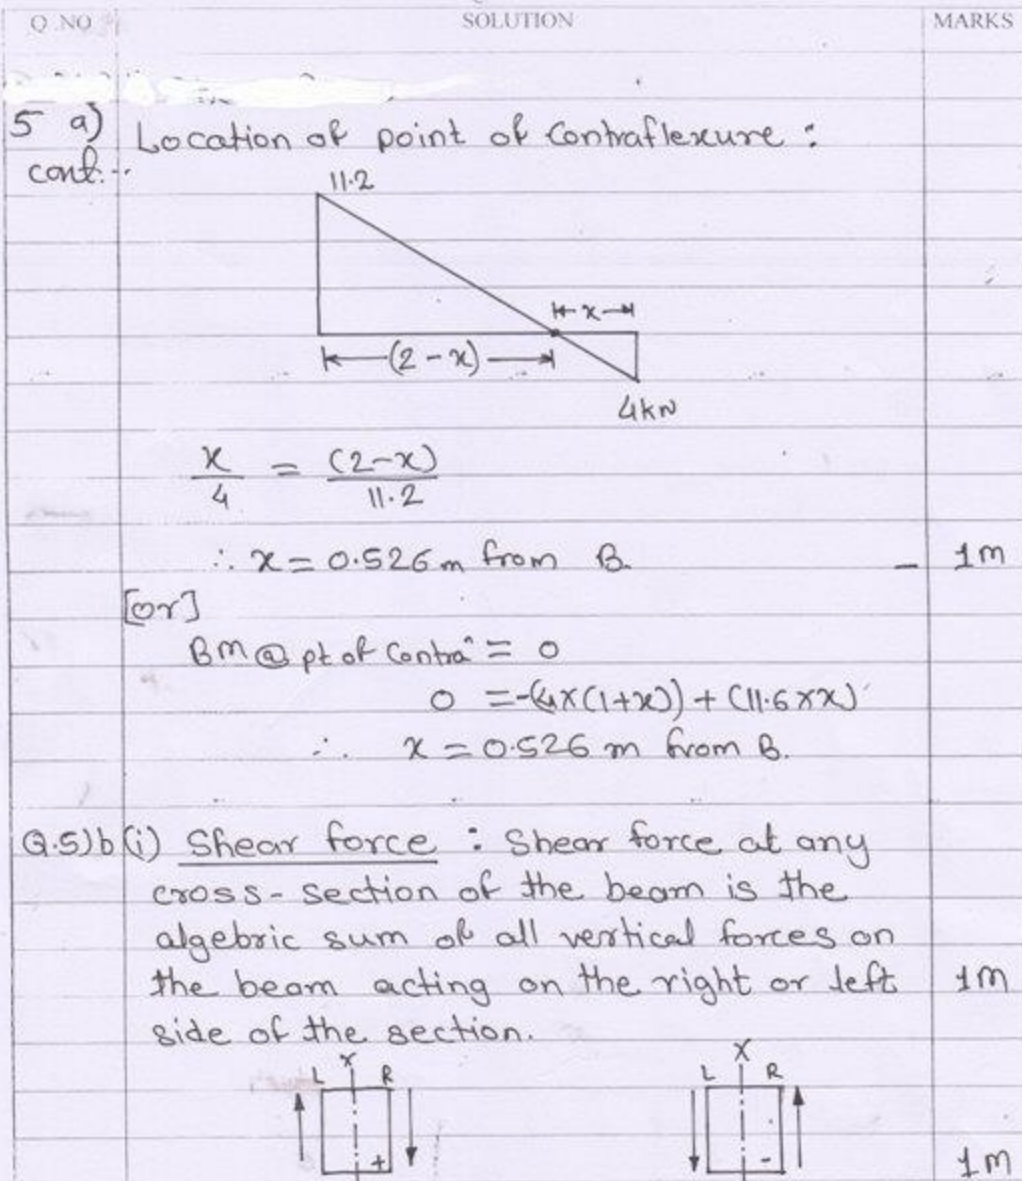 Q.NO SOLUTION MARKS
5 a) Location of point of Contraflexure :
cont...
11.2
x
(2-x)
4kN
x/4 = (2-x)/11.2
∴ x = 0.526 m from B. - 1M
[or]
BM @ pt of Contra^ = 0
0 = -(4x(1+x)) + (11.6xx)
∴ x = 0.526 m from B.
Q.5)b (i) Shear force : Shear force at any
cross-section of the beam is the
algebric sum of all vertical forces on
the beam acting on the right or left 1M
side of the section.
X X
L R L R
+ - 1M